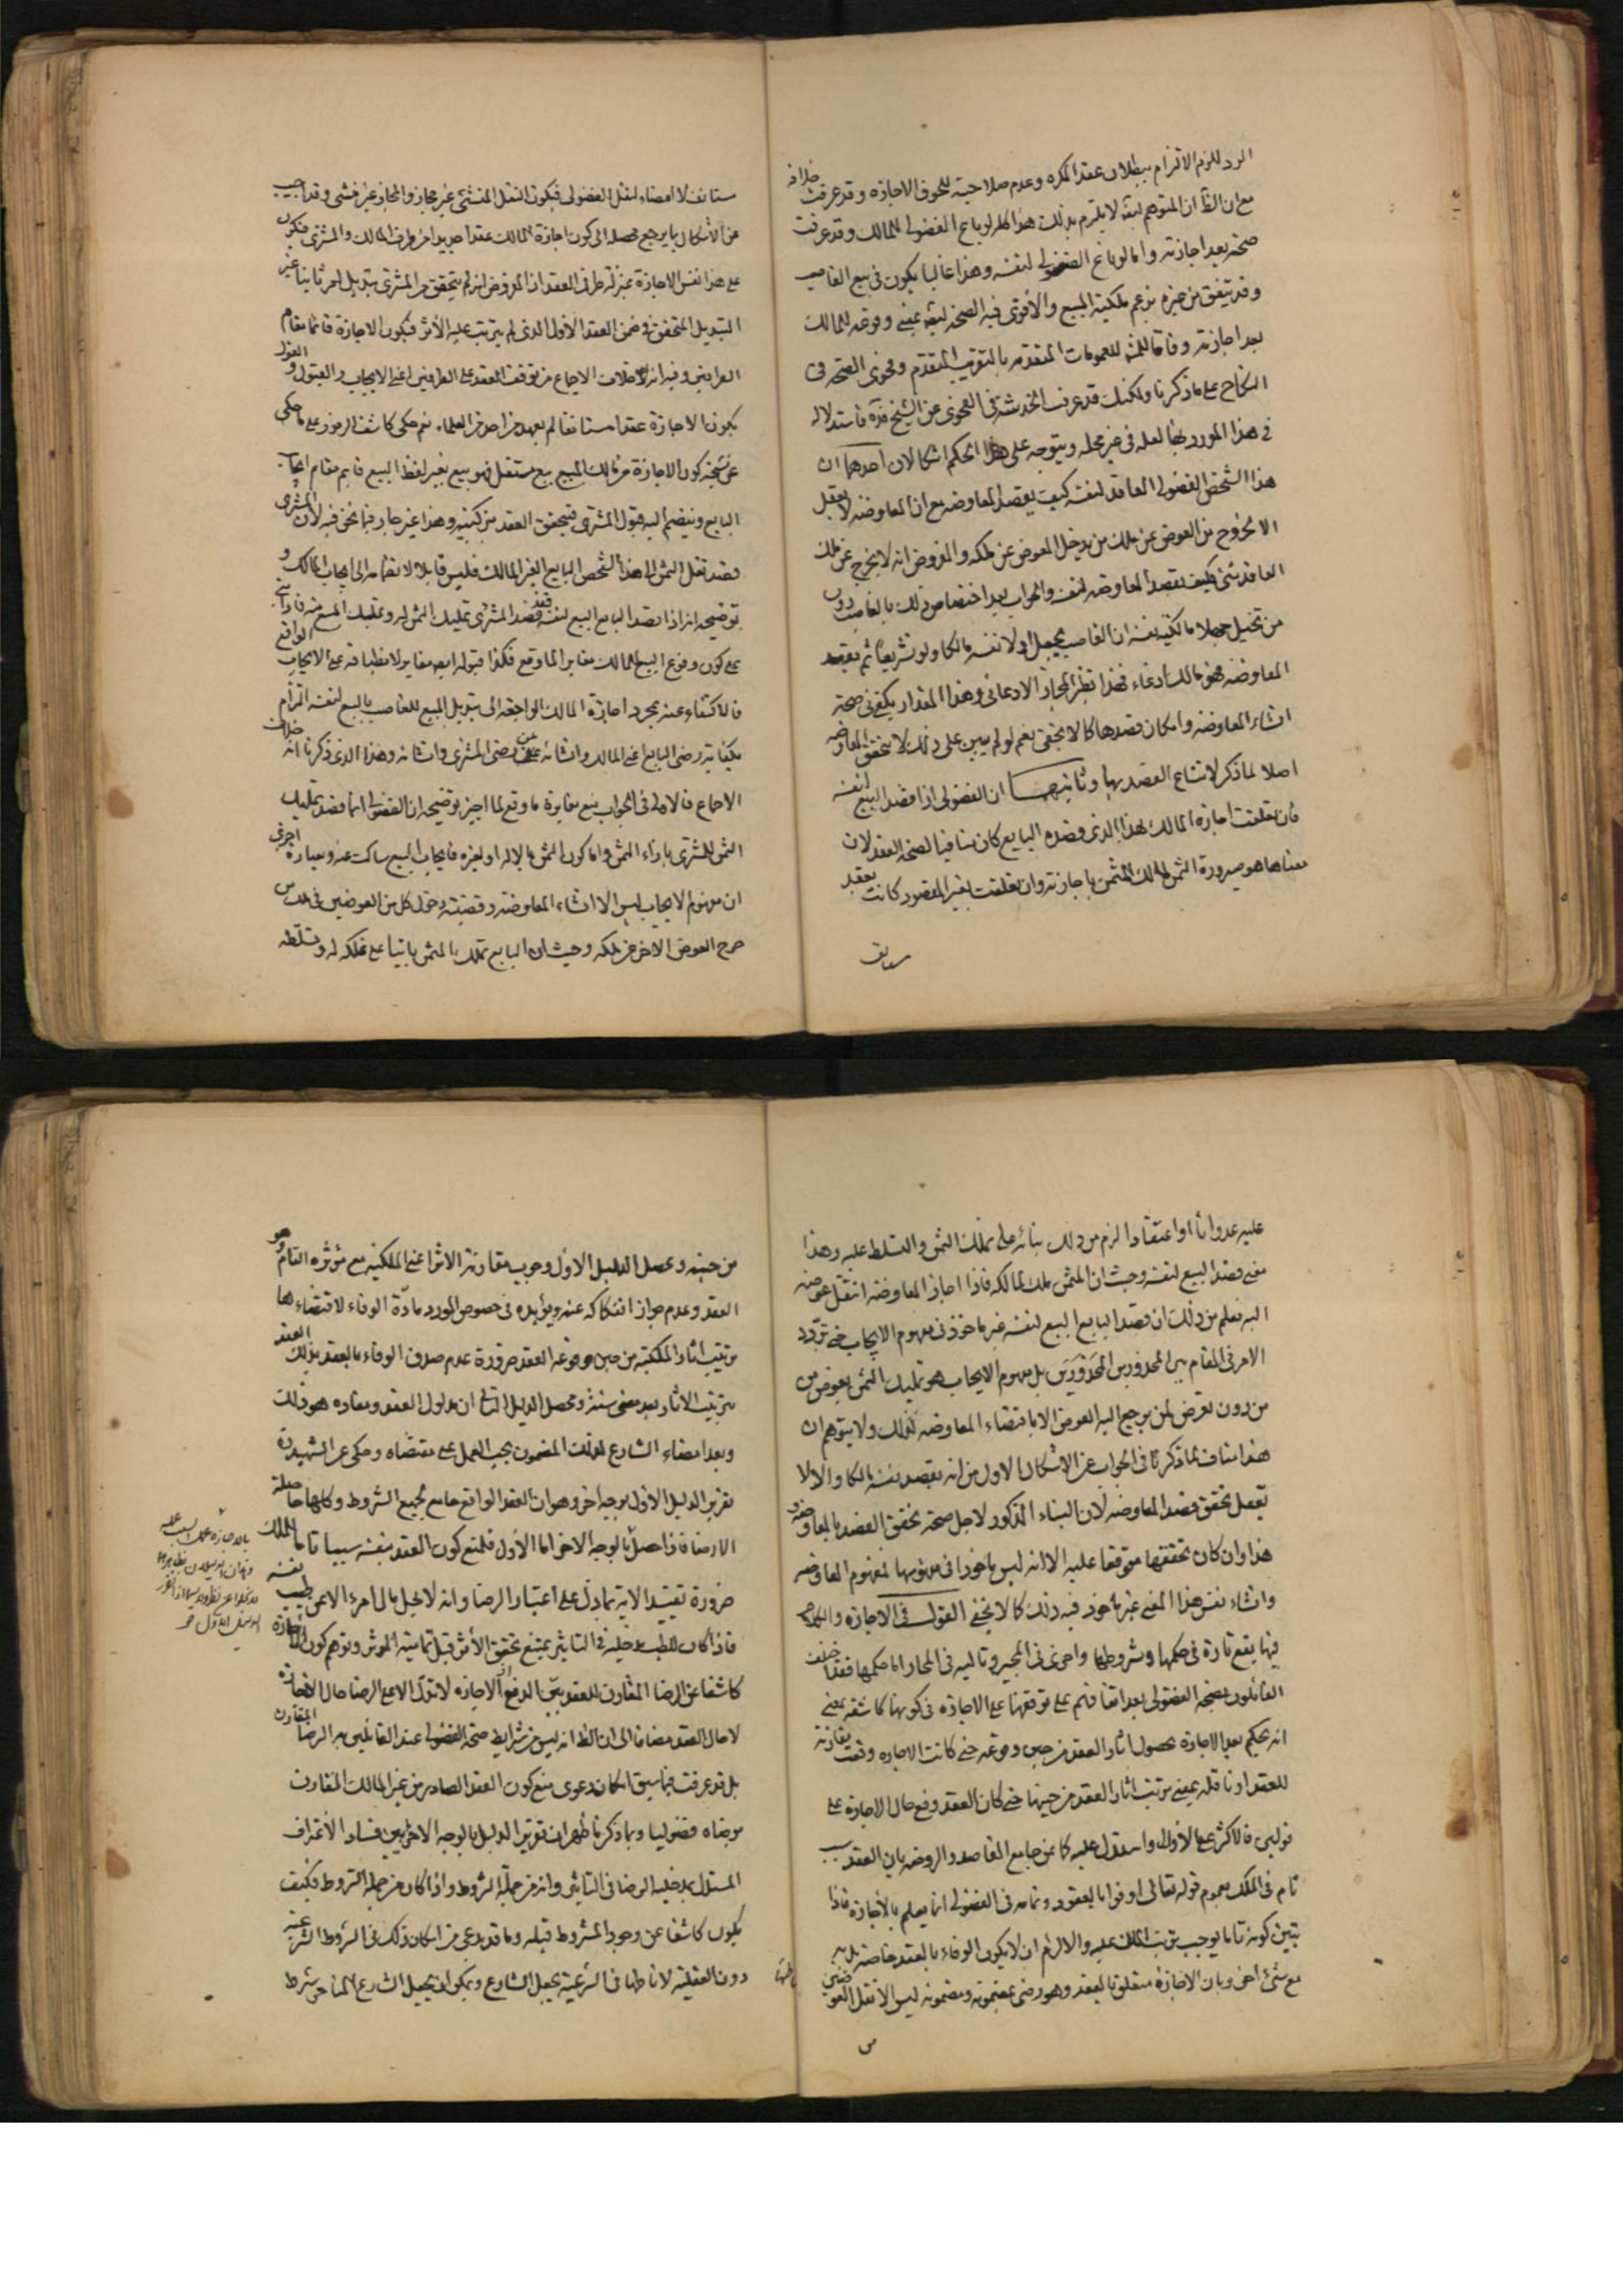 الرد للزم الالتزام ببطلان عقد المكره وعدم صلاحيته للحوق الاجازه وقد عرفت خلافه
مع ان الظ ان المتوهم لا يلتزم بذلك هذا كله لو باع الفضولى للمالك وقد عرفت
صحته بعد اجازته واما لو باع الفضولى لنفسه وهذا غالبا يكون فى بيع الغاصب
وقد يتفق من غيره بزعم ملكية المبيع والأقوى فيه الصحة بمعنى وقوعه للمالك
بعد اجازته وفاقا للعمومات المتقدمه بالتقريب المتقدم وفحوى الصحة فى
النكاح على ما ذكرنا ولكنك قد عرفت الخدشة فى الفحوى عن الشيخ قده فاستدلاله
فى هذا المورد بها لعله فى غير محله ويتوجه على هذا الحكم اشكالان احدهما ان
هذا الشخص الفضولى العاقد لنفسه كيف يقصد المعاوضه مع ان المعاوضه لا يعقل
الا بخروج من العوض عن ملك من يدخل المعوض عن ملكه والمفروض انه لا يخرج عن ملك
العاقد شئ فكيف يقصد المعاوضه لنفسه والجواب بعد اختصاص ذلك بالغاصب دون
من تخيل جهلا مالكية نفسه ان الغاصب يجعل اولا نفسه مالكا ولو تشريعا ثم يقصد
المعاوضه فهو مالك ادعاء فهذا نظير المجاز الادعائى وهذا المقدار يكفى فى صحة
انشاء المعاوضه وامكان قصدها كما لا يخفى نعم لو لم يبن على ذلك لا يتحقق المعاوضه
اصلا لما ذكر لامتناع القصد بها وثانيهما ان الفضولى اذا قصد البيع لنفسه
فان تعلقت اجازة المالك بهذا الذى قصده البايع كان منافيا لصحة العقد لان
معناها هو صيرورة الثمن لمالك المثمن باجازته وان تعلقت بغير المقصود كانت بعقد
مستانف لا امضاء لنقل الفضولى فيكون النقل المنشئ غير مجاز والمجاز غير منشئ وقد اجيب
عن الأشكال بما يرجع محصله الى كون اجازة المالك عقدا جديدا من طرف المالك والمشترى فيكون
على هذا نفس الاجازة بمنزلة طرفى العقد اذ المفروض انه لم يتحقق من المشترى تبديل اخر ثانيا غير
التبديل المتحقق فى ضمن العقد الأول الذى لم يترتب عليه الأثر فيكون الاجازة قائما مقام
الطرفين وفيه انه خلاف الاجماع من توقف العقد على الطرفين اعنى الايجاب والقبول والقول
بكون الاجازة عقدا مستانفا لم يعهد من احد من العلماء نعم حكى كاشف الرموز على ما حكى
عن شيخه كون الاجازة من مالك المبيع بيع مستقل فهو بيع بغير لفظ البيع قايم مقام ايجاب
البايع وينضم اليه قبول المشترى فيتحقق العقد من كنيه وهذا غير جار فيما نحن فيه لان المشترى
قصد نقل الثمن الى هذا الشخص البايع الغير المالك فليس قابلا لانضمامه الى ايجاب المالك و
توضيحه انه اذا قصد البايع البيع لنفسه فقد قصد المشترى تمليك الثمن له وتملك المبيع منه فاذا بنى
على كون وقوع البيع للمالك مغاير الما وقع فكذا قبوله ايضا مغاير لانطباقه على الايجاب الواقع
فالاكتفاء عنه بمجرد اجازة المالك الواجعه الى تبديل المبيع للغاصب بالبيع لنفسه التزام
بكفاية رضى البايع اعنى المالك وانشائه عن رضى المشترى وانشائه وهذا الذى ذكرنا انه خلاف
الاجماع فالاولى فى الجواب منع مغايرة ما وقع لما اجيز توضيحه ان الفضولى انما قصد تمليك
الثمن للمشترى بازاء الثمن واما كون الثمن مالا له او لغيره فايجاب البيع ساكت عنه وبعبارة اخرى
ان مفهوم الايجاب ليس الا انشاء المعاوضه وقضيته دخول كل من العوضين فى ملك من
خرج العوض الاخر من ملكه وحيث ان البايع تملك المثمن بانيا على تملكه له وتسلطه
عليه عدوانا او اعتقادا لزم من ذلك بنائه على تملك الثمن والتسلط عليه وهذا
معنى قصد البيع لنفسه وحيث ان المثمن ملك لمالكه فاذا اجاز المعاوضه انتقل عوضه
اليه فعلم من ذلك ان قصد البايع البيع لنفسه غير ماخوذ فى مفهوم الايجاب حتى تردد
الامر فى المقام بين المحذورين المحذورين بل مفهوم الايجاب هو تمليك الثمن بعوض من
من دون تعرض لمن يرجع اليه العوض الا باقتضاء المعاوضه لذلك ولا يتوهم ان
هذا مناف لما ذكرنا فى الجواب عن الإشكال الاول من انه يقصد نفسه مالكا والا لا
يعقل تحقق قصد المعاوضه لان البناء المذكور لاجل صحة تحقق القصد بالمعاوضه
هذا وان كان تحققها موقفا عليه الا انه ليس ماخوذا فى مفهومها لمفهوم المعاوضه
وانشاء نفس هذا المعنى غير ماخوذ فيه ذلك كما لا يخفى القول فى الاجازه والكلام
فيها يقع تارة فى حكمها وشروطها واخرى فى المجيز وثالثه فى المجاز اما حكمها فقد اختلف
القائلون بصحة الفضولى بعد اتفاقهم على توقفها على الاجازه فى كونها كاشفه بمعنى
انه يحكم بعد الاجازة بحصول اثار العقد من حين وقوعه حتى كانت الاجازه وقعت مقارنة
للعقد او ناقله بمعنى ترتب اثار العقد من حينها حتى كان العقد وقع حال الاجازة على
قولين فالاكثر على الأول واستدل عليه كما عن جامع المقاصد والروضه بان العقد سبب
تام فى الملك بعموم قوله تعالى اوفوا بالعقود وتمامه فى الفضولى انما يعلم بالاجازة فاذا
تبين كونه تاما يوجب ترتب الملك عليه والا لزم ان لا يكون الوفاء بالعقد خاصة بل به
مع شئ اخر وبان الاجازة متعلقة بالعقد وهو رضى بمضمونه ومضمونه ليس الا نقل العوضين
من حينه ومحصل الدليل الاول وجوب مقارنة الاثر اعنى الملكية مع مؤثره التام وهو
العقد وعدم جواز انفكاكه عنه ويؤيده فى خصوص المورد مادة الوفاء لاقتضاءها
ترتيب اثار الملكية من حين وقوعه العقد ضرورة عدم صدق الوفاء بالعقد بذلك العقد
بترتيب الاثار بعد مضى سنة ومحصل الدليل الثانى ان مدلول العقد ومفاده هو ذلك
وبعد امضاء الشارع لذلك المضمون يجب العمل على مقتضاه وحكى عن الشهيد ره
تقرير الدليل الأول بوجه اخر وهو ان العقد الواقع جامع لجميع الشروط وكلها حاصلة
الا رضا فاذا حصل بالوجه الاخر اما الأول فلمنع كون العقد بنفسه سببا تاما للملك
ضرورة تقييد الاية بما دل على اعتبار الرضا وانه لا يحل مال امرء الا عن طيب نفسه
فاذا كان للطيب دخليه فى التاثير يمتنع تحقق الأثر قبل تمامية المؤثر وتوهم كون الاجازة
كاشفا عن الرضا المقارن للعقد بين الدفع اذ الاجازه لا تدل الا على الرضا حال الاجازة
لا حال العقد مضافا الى ان الظ انه ليس من شرايط صحة الفضولى عند القائلين به الرضا المقارن
بل قد عرفت فيما سبق امكان دعوى منع كون العقد الصادر من غير المالك المقارن
برضاه فضوليا وبما ذكرنا ظهر ان تقرير الدليل بالوجه الاخر ايضا فساد الاعتراف
المستدل بدخلية الرضا فى التاثير وانه من جملة الشروط واذا كان من جملة الشروط فكيف
يكون كاشفا عن وجود المشروط قبله وما قد يدعى من امكان ذلك فى الشروط الشرعية
دون العقلية لاناطتها فى الشرعية بجعل الشارع ويمكن ان يجعل الشارع المتاخر شرط